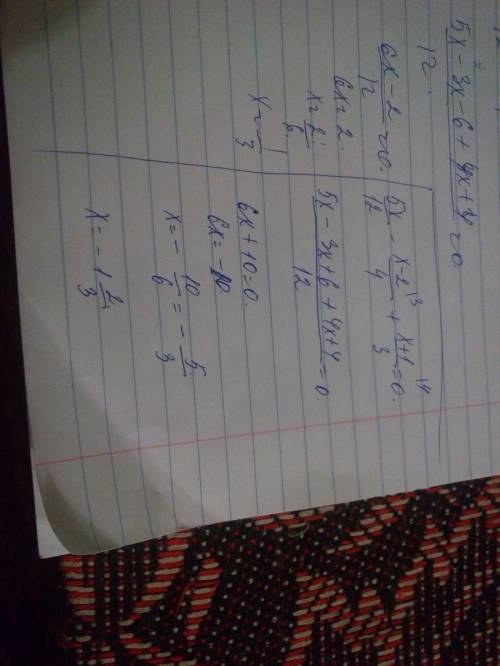 5x - 3x - 6 + 4x + 4 / 12 = 0
6x - 2 / 12 = 0.
6x = 2.
x = 2/6.
x = 1/3
5x/12 - x-2/4 \3 + x+1/3 \4 = 0.
5x - 3x + 6 + 4x + 4 / 12 = 0.
6x + 10 = 0.
6x = -10.
x = - 10/6 = - 5/3
x = - 1 2/3.